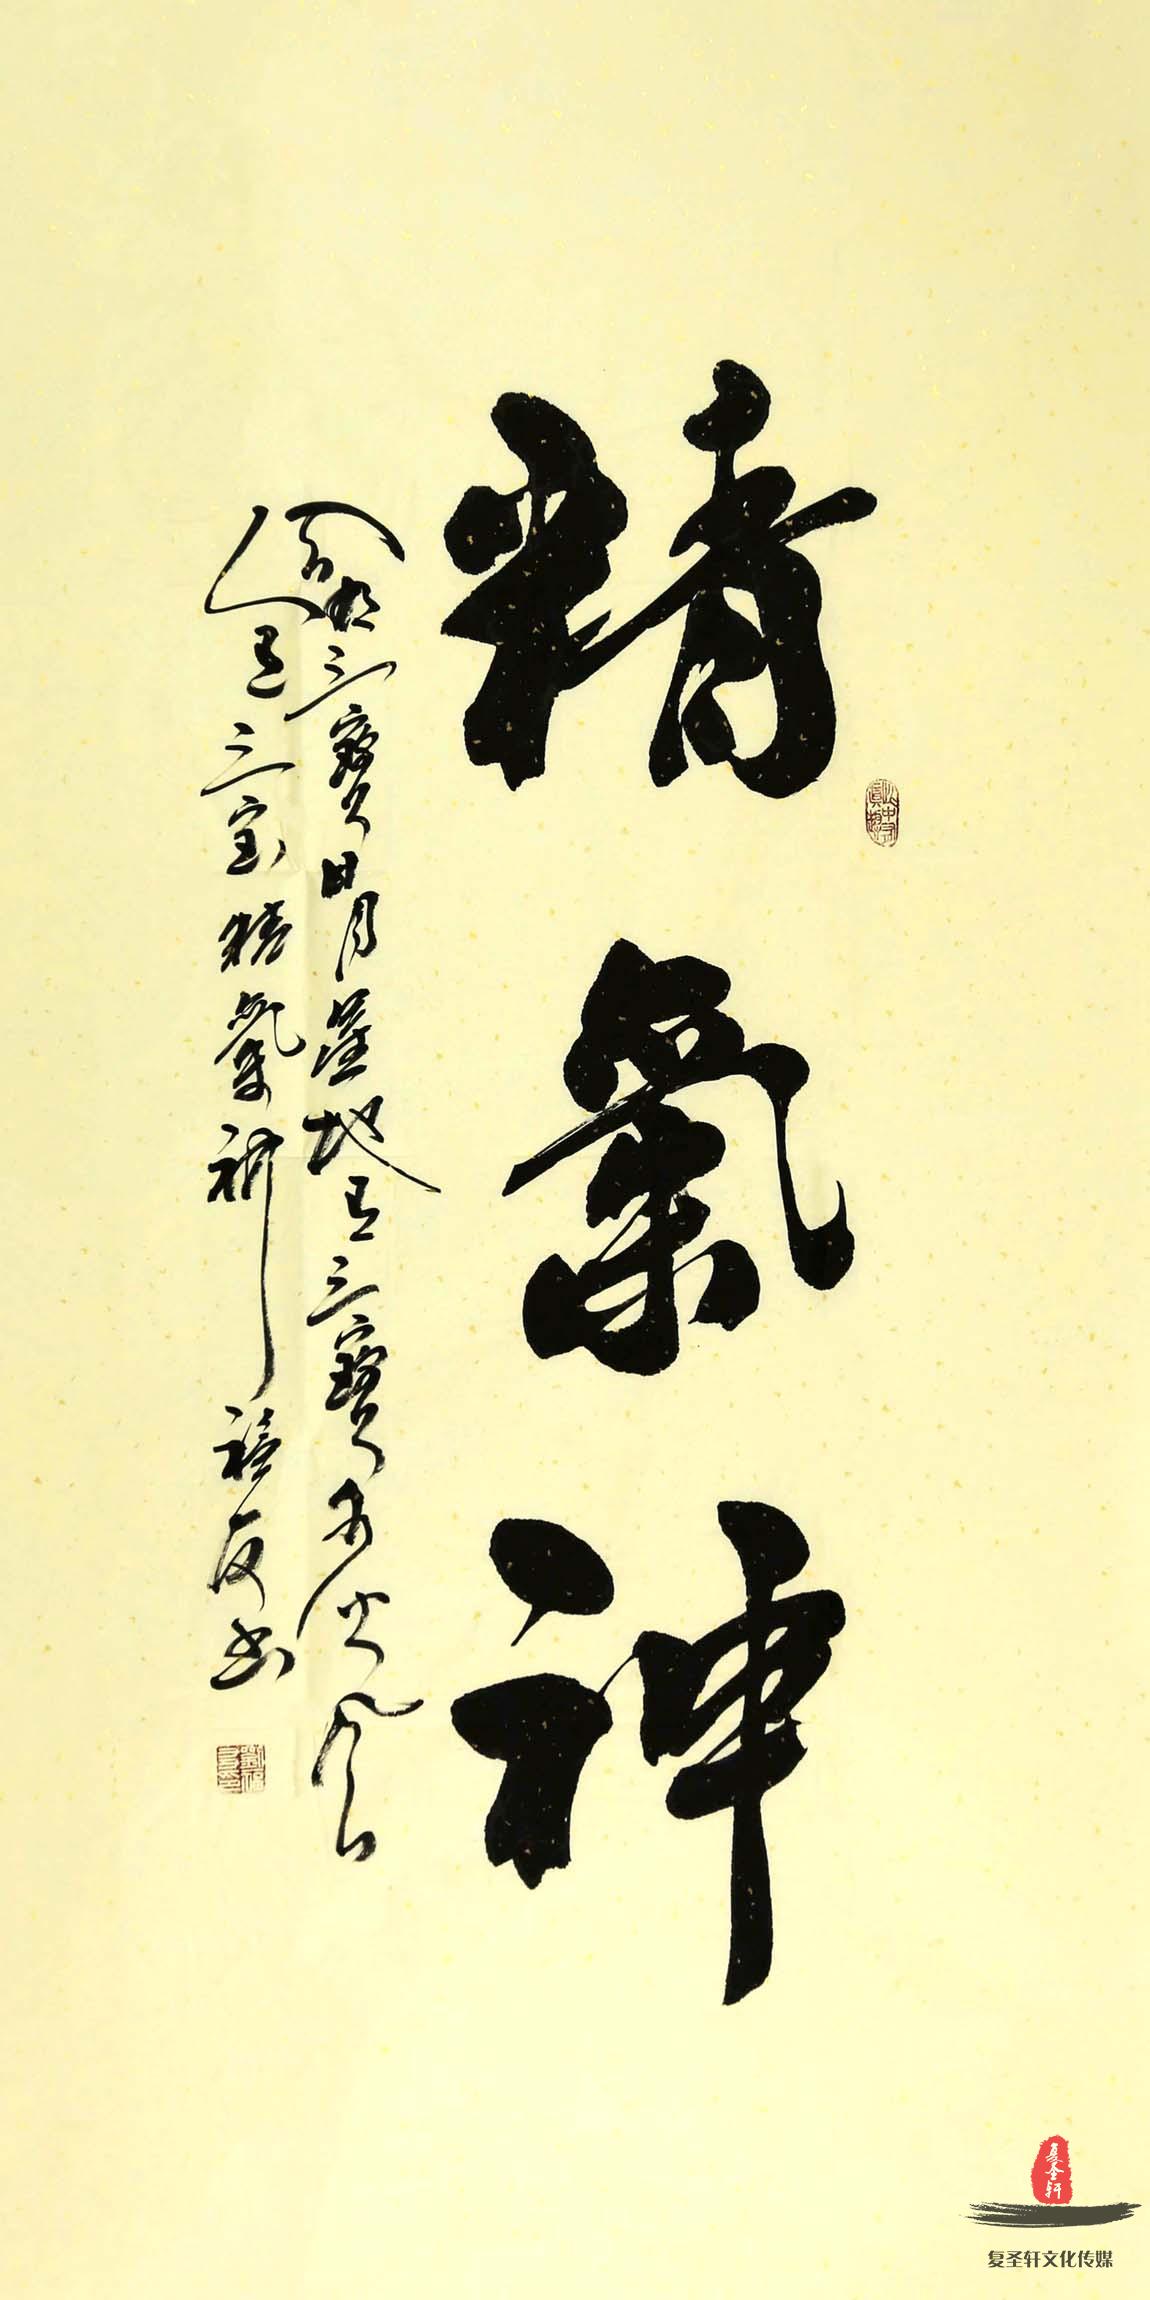 精氣神
三寶日月星地有三寶水火風
人有三宝精氣神福友书
复圣轩
复圣轩文化传媒